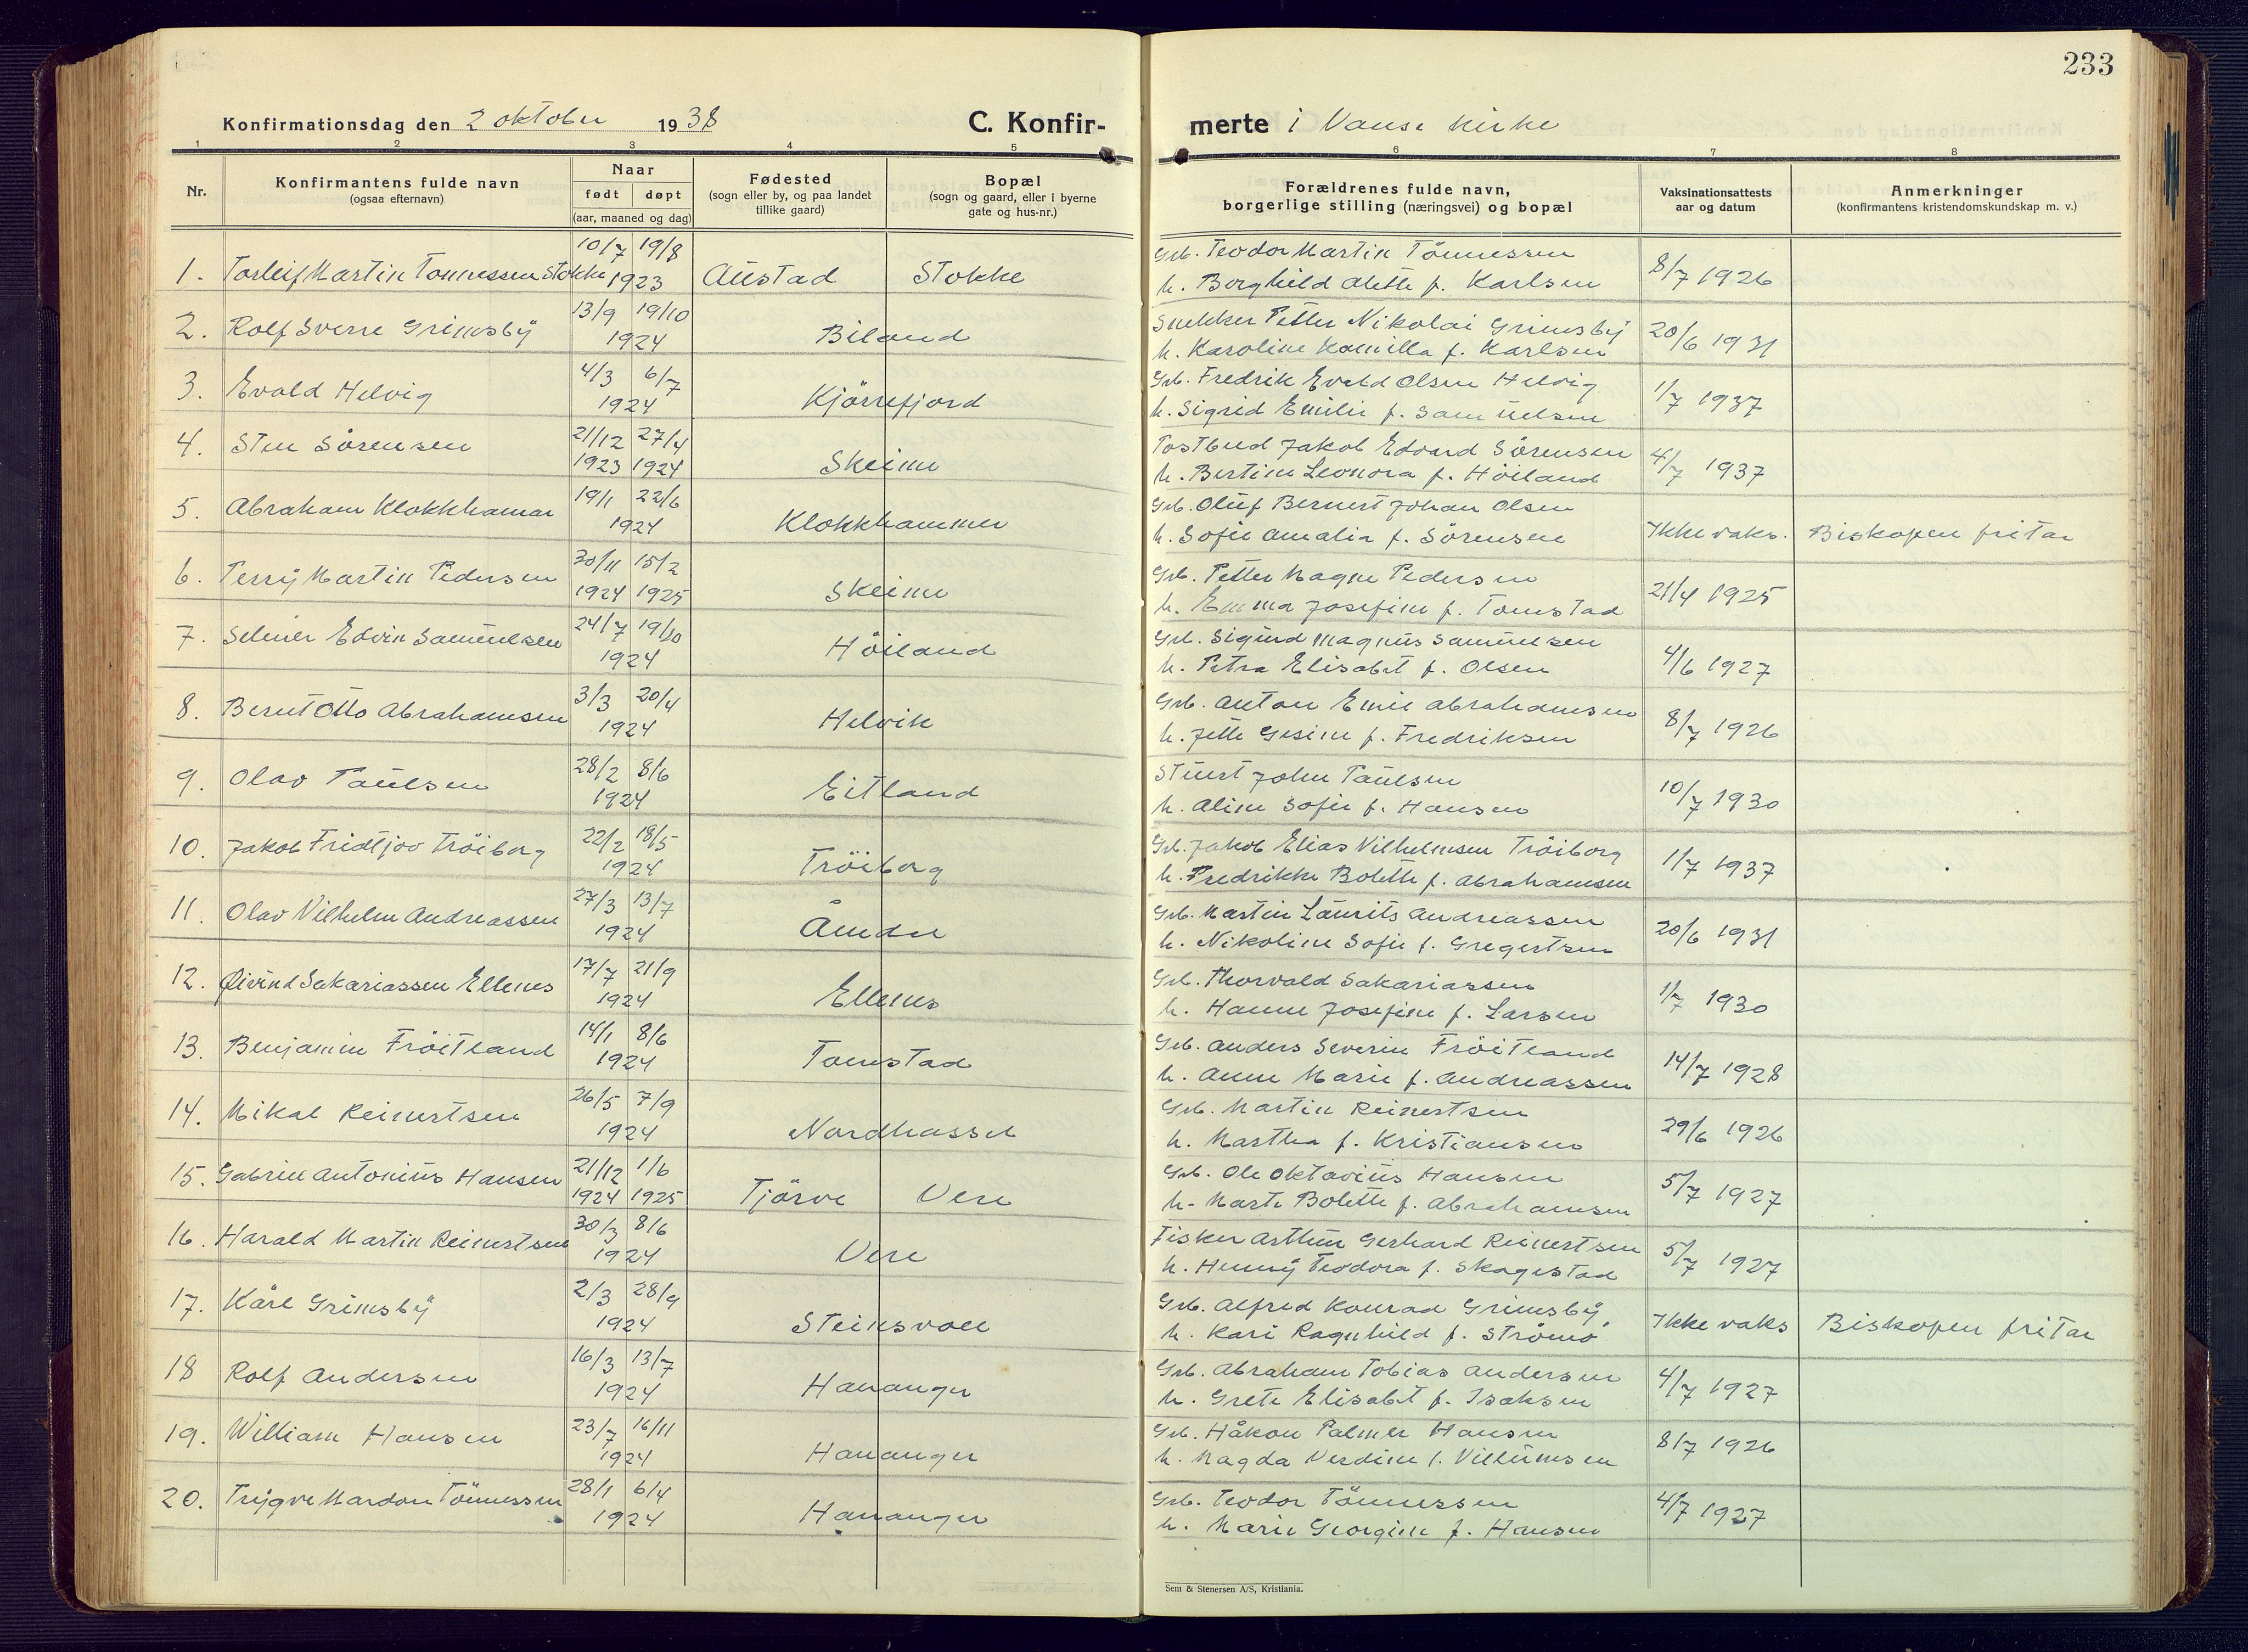 233
Konfirmationsdag den 2 oktober 1938 C. Konfir-merte i Vanse kirke
1 2 3 4 5 6 7 8
Nr. Konfirmantens fulde navn (ogsaa efternavn) Naar født døpt (aar, maaned og dag) Fødested (sogn eller by, og paa landet tillike gaard) Bopæl (sogn og gaard, eller i byerne gate og hus-nr.) Forældrenes fulde navn, borgerlige stilling (næringsvei) og bopæl Vaksinationsattests aar og datum Anmerkninger (konfirmantens kristendomskundskap m. v.)
10/7 19/8 Grb. Teodor Martin Tönnessen
1. Torleif Martin Tönnessen Stokke 1923 Austad Stokke h. Borghild Alette f. Karlsen 8/7 1926
13/9 19/10 Snekker Petter Nikolai Grimsbÿ
2. Rolf Sverre Grimsbÿ 1924 Biland h. Karoline Kamilla f. Karlsen 20/6 1931
4/3 6/7 Grb. Fredrik Evald Olsen Helvig
3. Evald Helvig 1924 Kjörrefjord h. Sigrid Emilie f. Samuelsen 1/7 1937
21/12 27/4 Postbud Jakob Edvard Sörensen
4. Sten Sörensen 1923 1924 Skeime h. Bertine Leonora f. Höiland 4/7 1937
19/1 22/6 Grb. Oluf Bernert Johan Olsen
5. Abraham Klokkhamar 1924 Klokkhammer h. Sofie Amalia f. Sörensen Ikke vaks. Biskopen fritar
30/11 15/2 Grb. Petter Magne Pedersen
6. Perrÿ Martin Pedersen 1924 1925 Skeime h. Emma Josefine f. Tomstad 21/4 1925
24/7 19/10 Grb. Sigurd Magnus Samuelsen
7. Selmer Edvin Samuelsen 1924 Höiland h. Petra Elisabet f. Olsen 4/6 1927
3/3 20/4 Grb. Anton Emil Abrahamsen
8. Bernt Otto Abrahamsen 1924 Helvik h. Jette Gesine f. Fredriksen 8/7 1926
28/2 8/6 Stuert John Paulsen
9. Olav Paulsen 1924 Eitland h. Aline Sofie f. Hansen 10/7 1930
22/2 18/5 Grb. Jakob Elias Vilhelmsen Tröiborg
10. Jakob Fridtjov Tröiborg 1924 Tröiborg h. Fredrikke Bolette f. Abrahamsen 1/7 1937
27/3 13/7 Grb. Martin Laurits Andreassen
11. Olav Vilhelm Andreassen 1924 Åmdu h. Nikoline Sofie f. Gregertsen 20/6 1931
17/7 21/9 Grb. Thorvald Sakariassen
12. Øivind Sakariassen Ellenes 1924 Ellenes h. Hanne Josefine f. Larsen 1/7 1930
14/1 8/6 Grb. Anders Severin Fröitland
13. Benjamin Fröitland 1924 Tomstad h. Anne Marie f. Andreassen 14/7 1928
26/5 7/9 Grb. Martin Reinertsen
14. Mikal Reinertsen 1924 Nordhassel h. Martha f. Kristiansen 29/6 1926
21/12 1/6 Grb. Ole Oktavius Hansen
15. Gabriel Antonius Hansen 1924 1925 Tjörve Vere h. Marte Bolette f. Abrahamsen 5/7 1927
30/3 8/6 Fisker Arthur Gerhard Reinertsen
16. Harald Martin Reinertsen 1924 Vere h. Hennÿ Teodora f. Skagestad 5/7 1927
2/3 28/9 Grb. Alfred Konrad Grimsbÿ
17. Kåre Grimsbÿ 1924 Steinsvoll h. Kari Ragnhild f. Strömö Ikke vaks Biskopen fritar
16/3 13/7 Grb. Abraham Tobias Andersen
18 Rolf Andersen 1924 Hananger h. Grete Elisabet f. Isaksen 4/7 1927
23/7 16/11 Grb. Håkon Palmer Hansen
19. William Hansen 1924 Hananger h. Magda Verdine f. Villumsen 8/7 1926
28/1 6/4 Grb. Teodor Tönnessen
20. Trÿgve Mardon Tönnessen 1924 Hananger h. Marie Georgine f. Hansen 4/7 1927
Sem & Stenersen A/S, Kristiania.